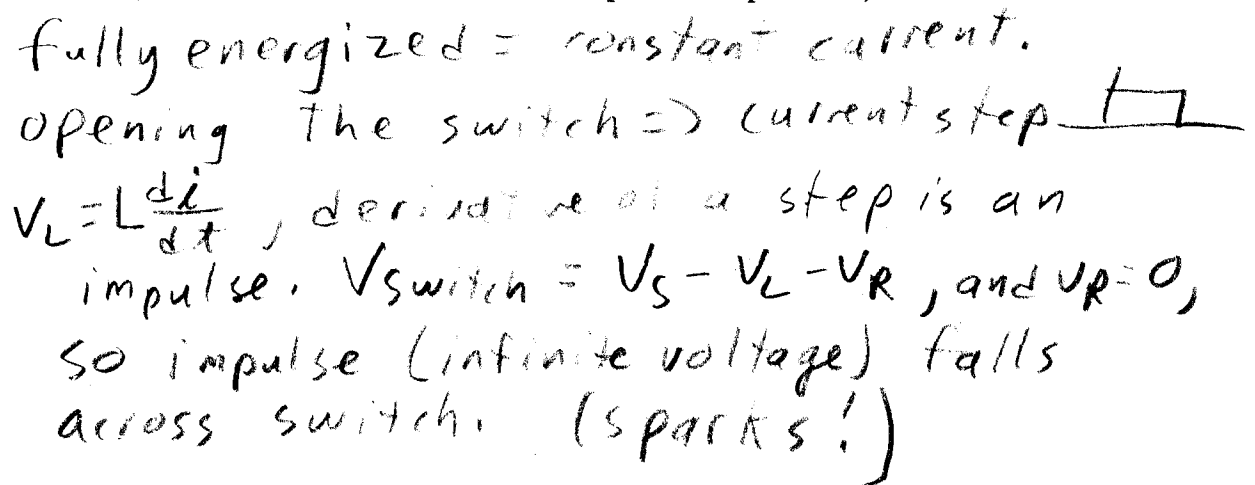 fully energized = constant current.
opening the switch => current step
V_L = L di/dt, derivative of a step is an
impulse. Vswitch = V_S - V_L - V_R, and V_R = 0,
so impulse (infinite voltage) falls
across switch. (sparks!)